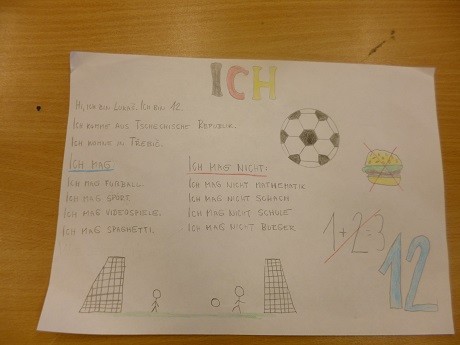 ICH
HI, ICH BIN LUKAŠ. ICH BIN 12.
ICH KOMME AUS TSCHECHISCHE REPUBLIK.
ICH WOHNE IN TŘEBIČ.
ICH MAG
ICH MAG FUßBALL.
ICH MAG SPORT.
ICH MAG VIDEOSPIELE.
ICH MAG SPAGHETTI.
ICH MAG NICHT:
ICH MAG NICHT MATHEMATIK
ICH MAG NICHT SCHACH
ICH MAG NICHT SCHULE
ICH MAG NICHT BURGER
1+2=3
12